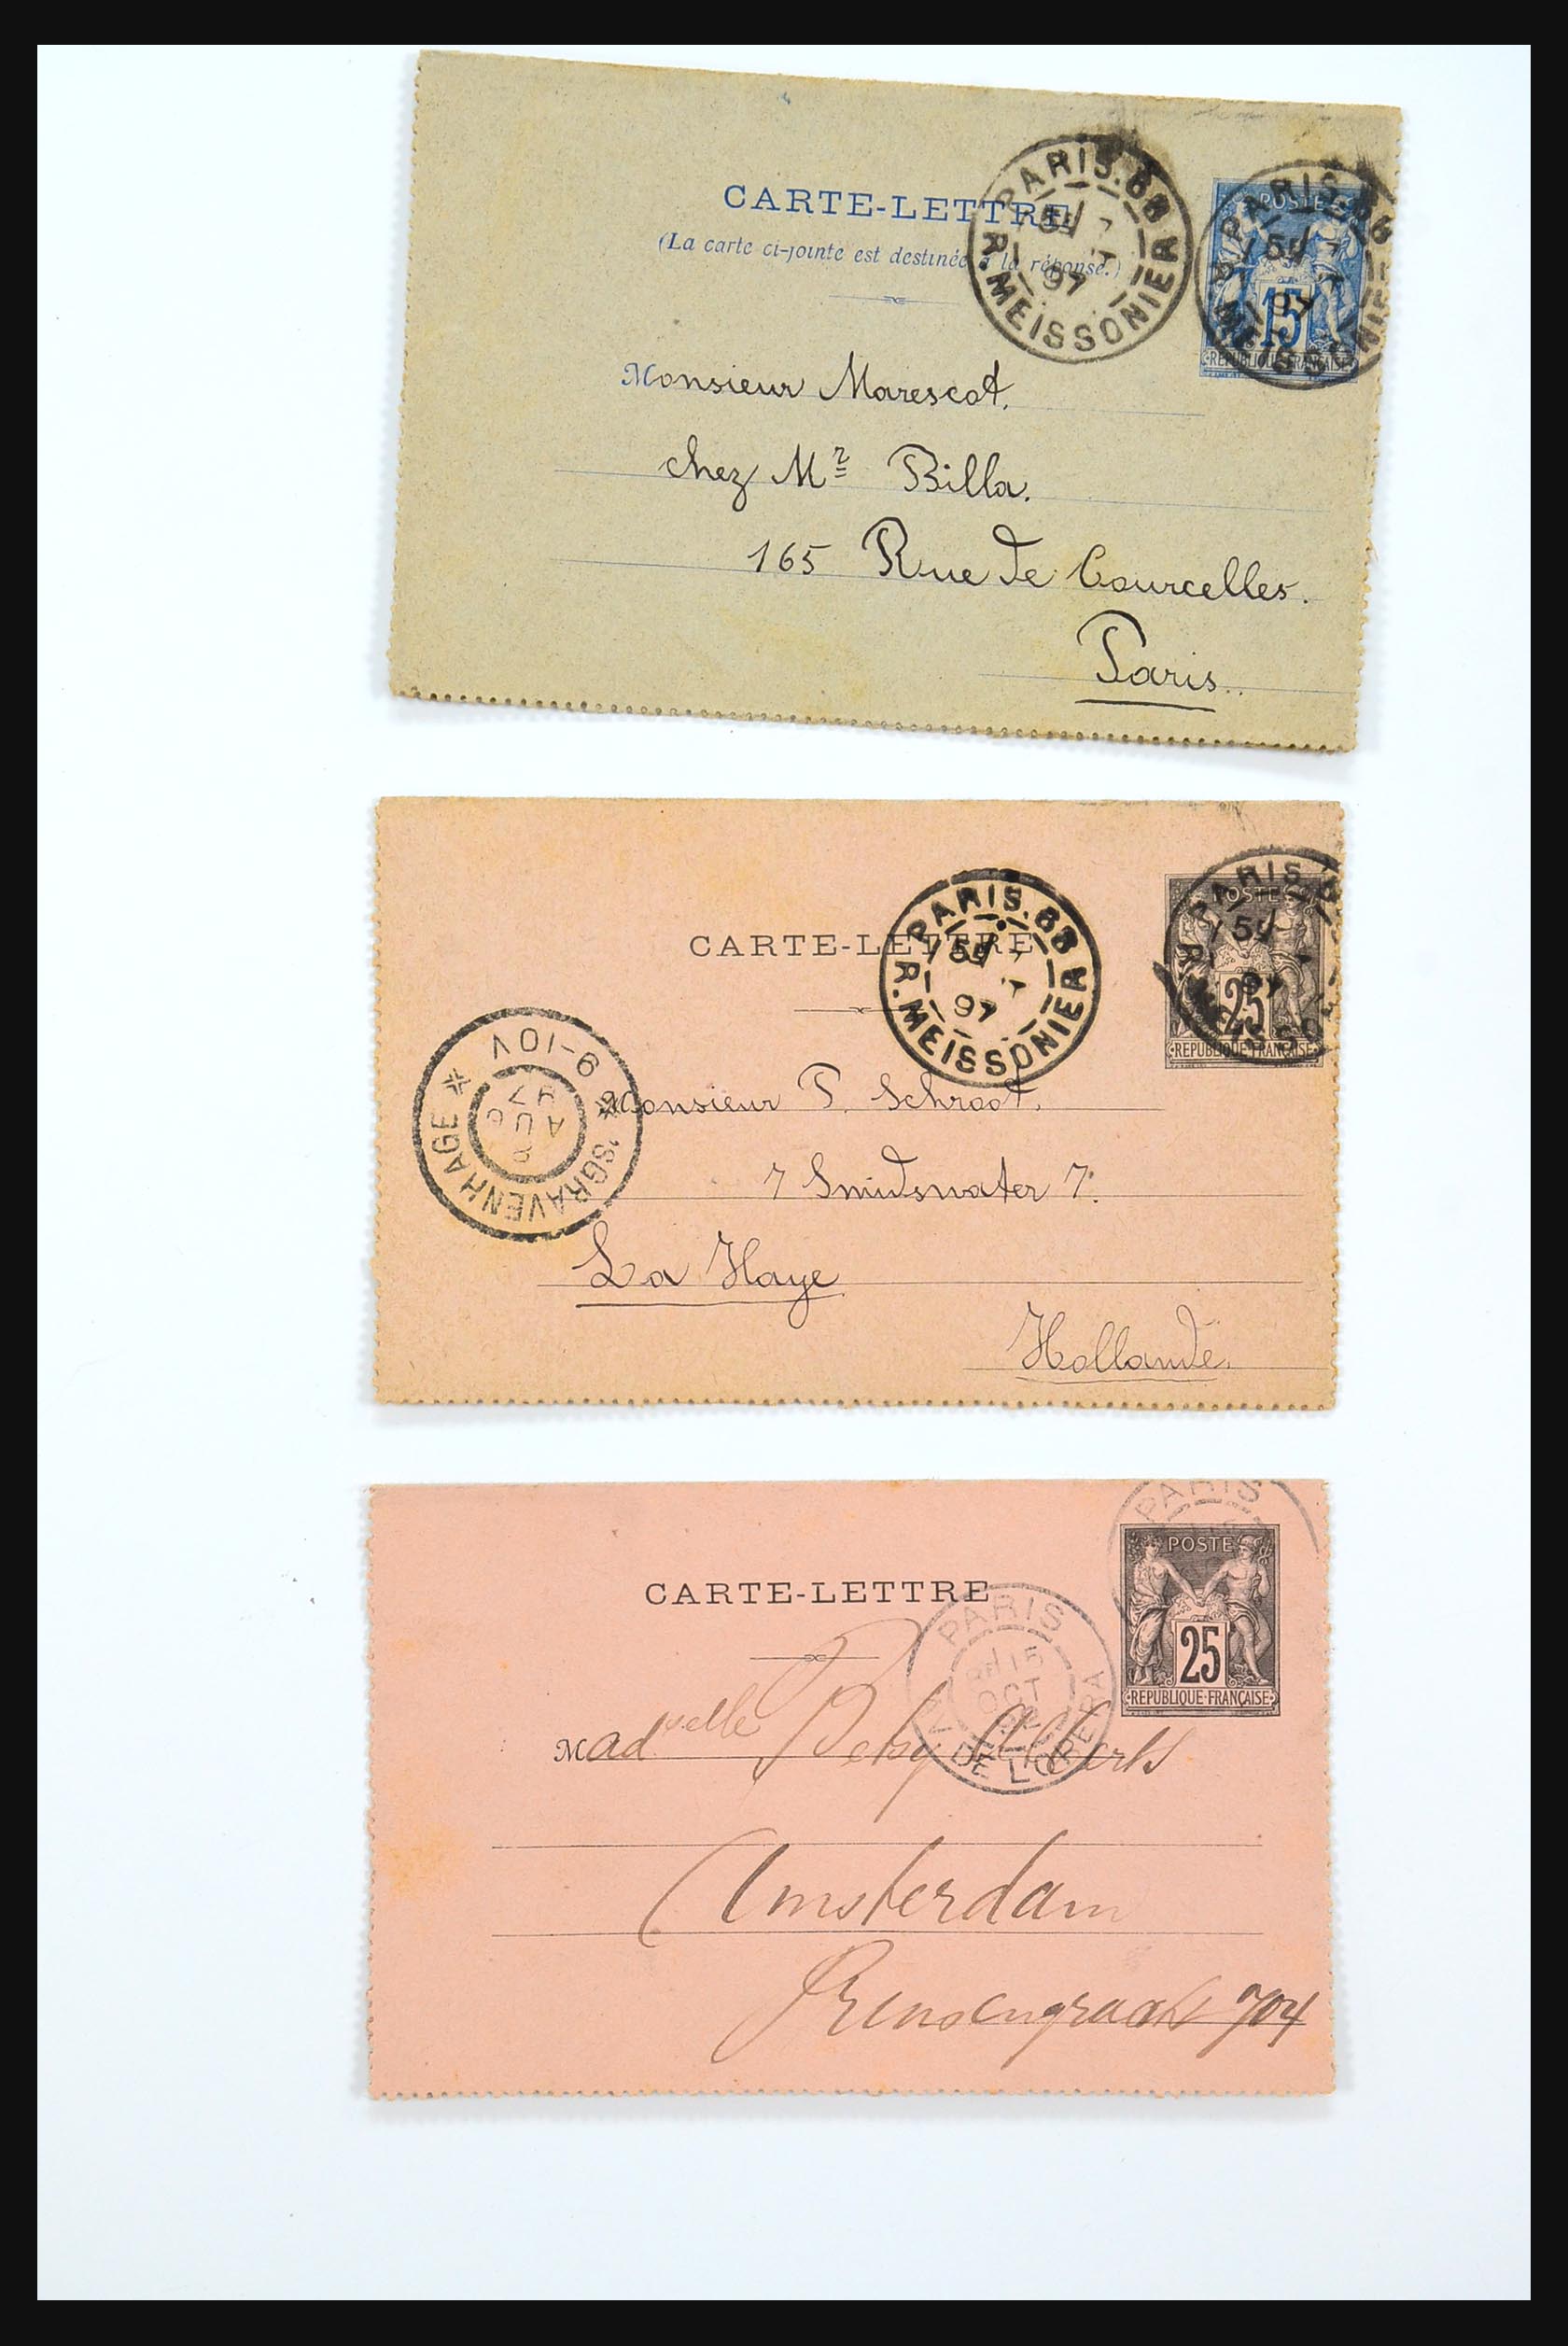 CARTE-LETTRE
(La carte ci-jointe est destinée à la réponse.)
PARIS. 68
R. MEISSONIER
97
PARIS. 68
R. MEISSONIER
97
POSTE
15
REPUBLIQUE FRANÇAISE
Monsieur Marescot.
chez Mr Billa.
165 Rue de Courcelles.
Paris.
CARTE-LETTRE
PARIS. 68
R. MEISSONIER
97
PARIS
97
POSTE
25
REPUBLIQUE FRANÇAISE
'SGRAVENHAGE
9-10V
8
AUG
97
Monsieur P. Schroot.
7 Smidswater 7.
La Haye
Hollande.
CARTE-LETTRE
PARIS
PARIS
15
OCT
DE L'OPERA
POSTE
25
REPUBLIQUE FRANÇAISE
Madselle Betsy Alberts
Amsterdam
704